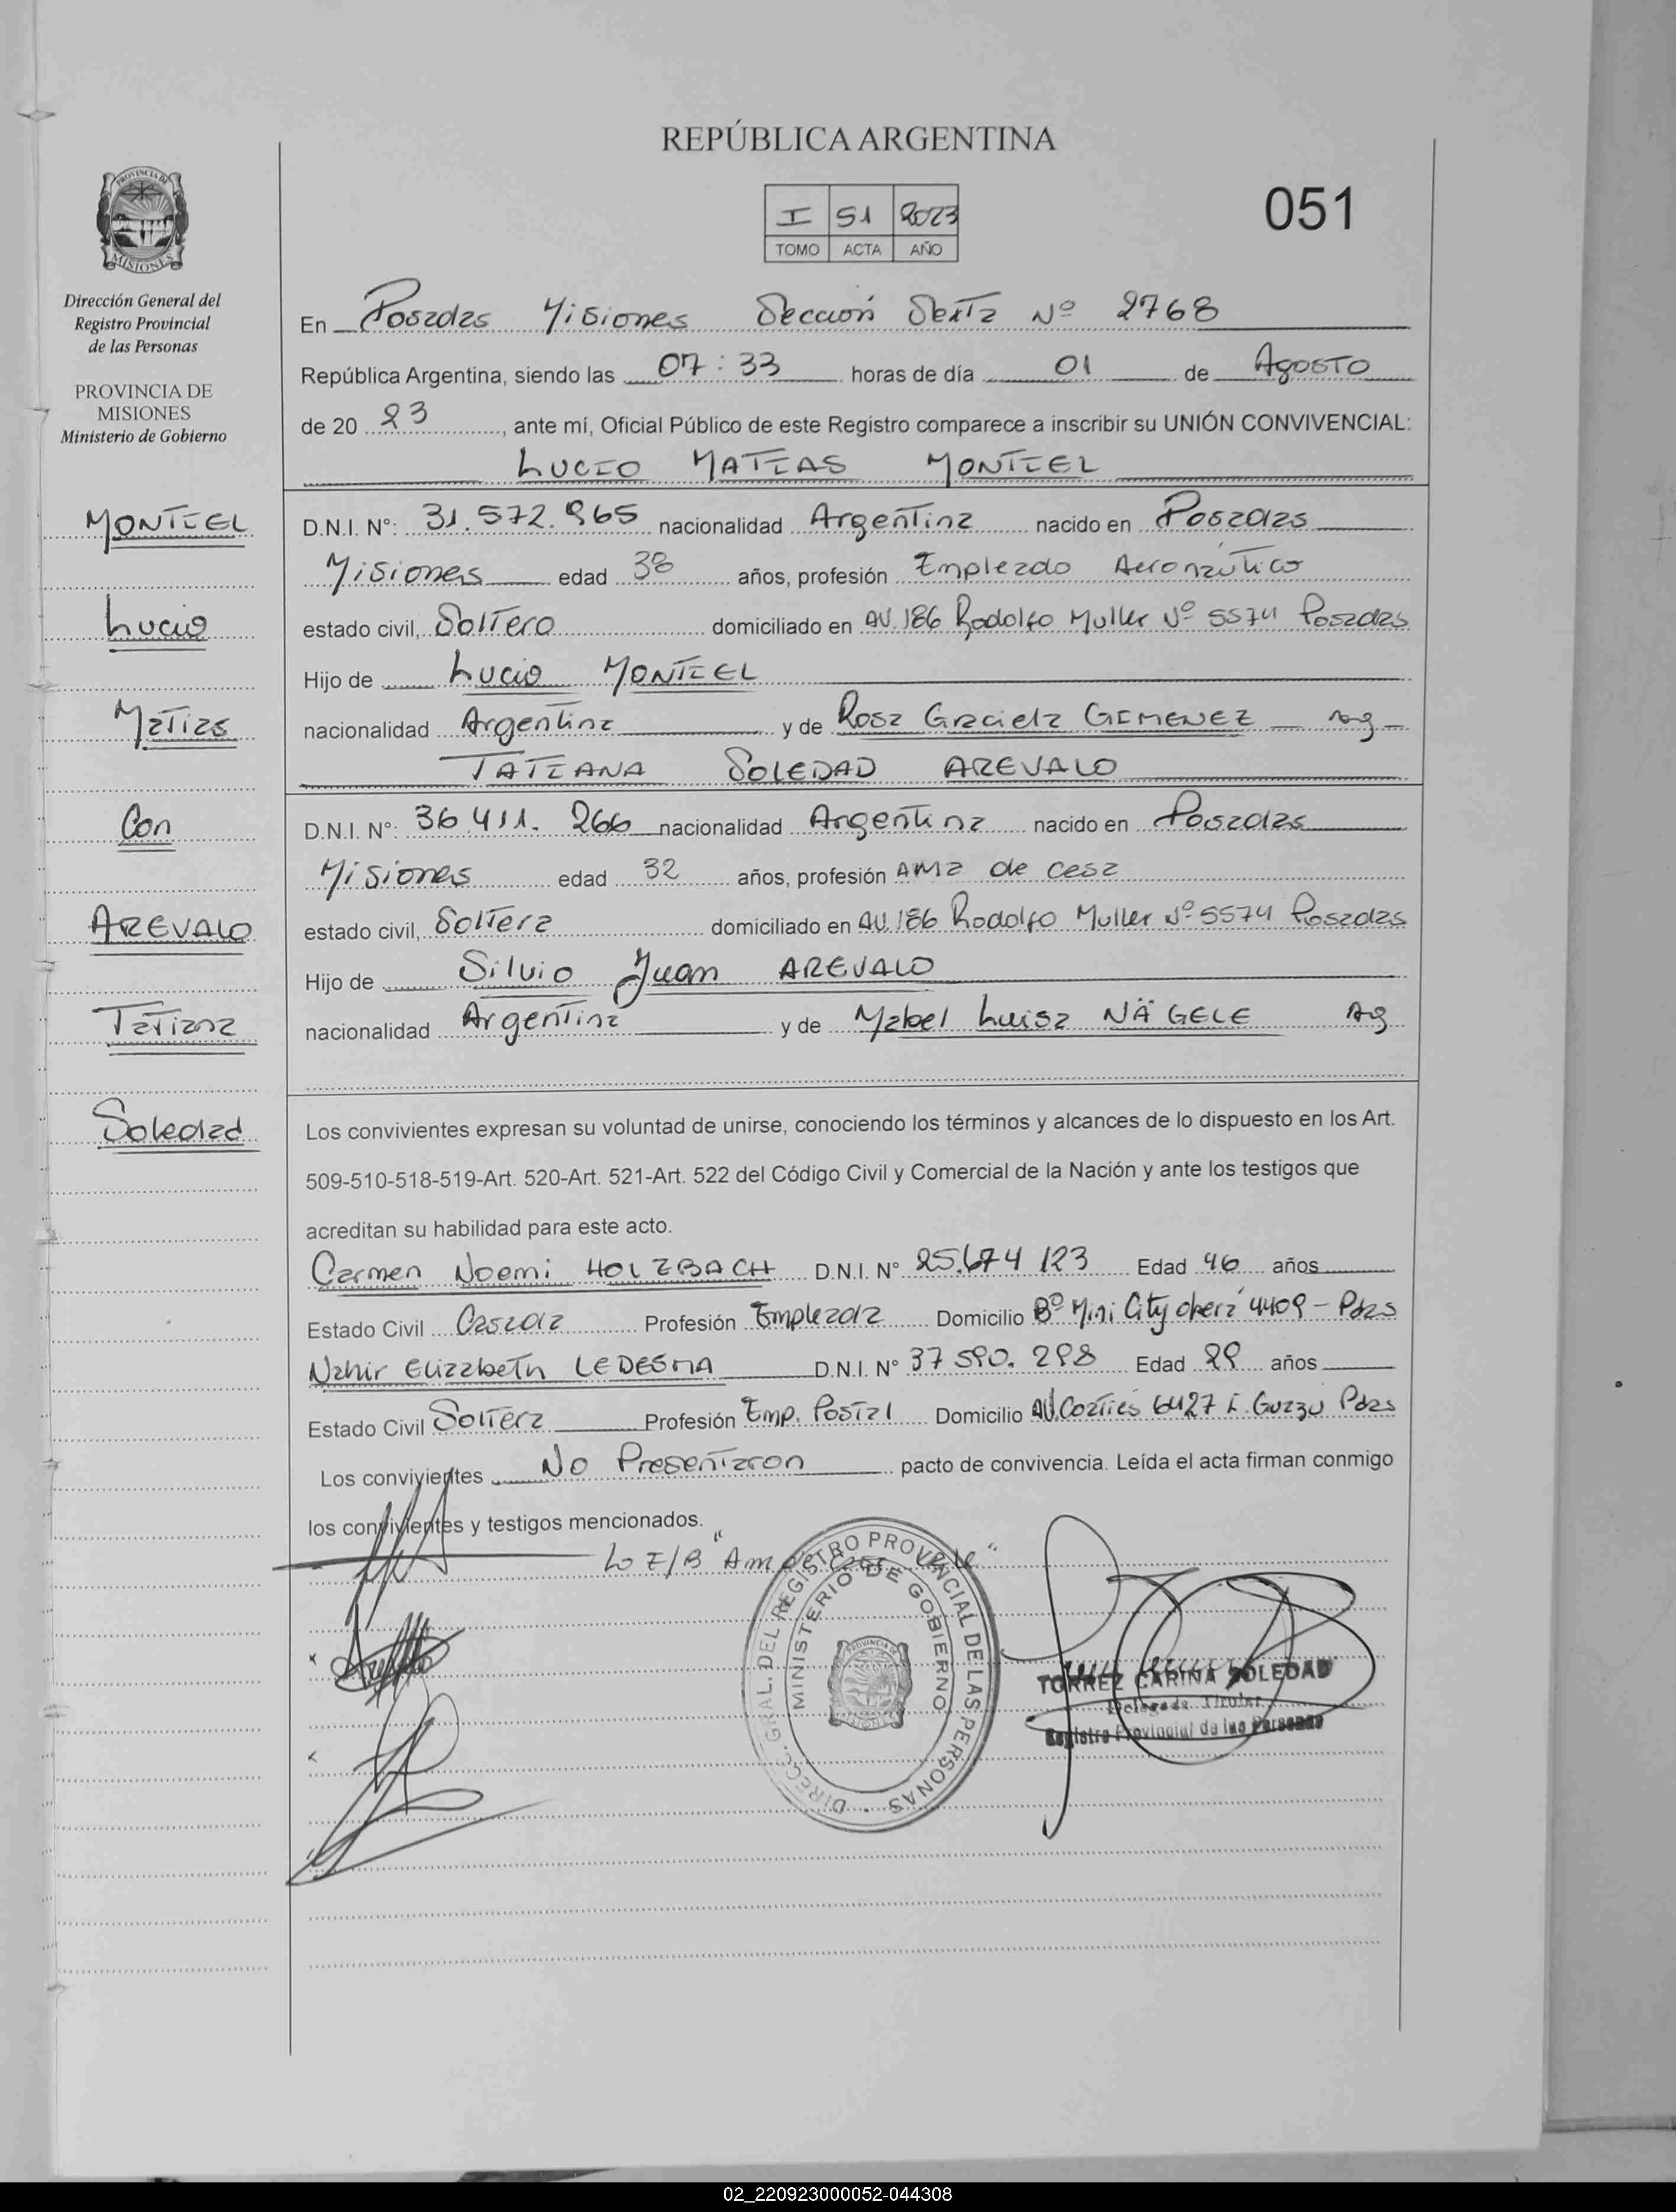 REPÚBLICA ARGENTINA
I 51 2023
TOMO ACTA AÑO
051
PROVINCIA DE
MISIONES
Dirección General del
Registro Provincial
de las Personas
PROVINCIA DE
MISIONES
Ministerio de Gobierno
MONTIEL
Lucio
Matias
Con
AREVALO
Tatiana
Soledad
En Posadas Misiones Sección Sexta Nº 2768
República Argentina, siendo las 07:33 horas de día 01 de Agosto
de 20 23, ante mí, Oficial Público de este Registro comparece a inscribir su UNIÓN CONVIVENCIAL:
LUCIO MATIAS MONTIEL
D.N.I. Nº: 31.572.965 nacionalidad Argentina nacido en Posadas
Misiones edad 38 años, profesión Empleado Aeronáutico
estado civil, Soltero domiciliado en AV. 186 Rodolfo Muller Nº 5574 Posadas
Hijo de Lucio MONTIEL
nacionalidad Argentina y de Rosa Graciela GIMENEZ Arg
TATIANA SOLEDAD AREVALO
D.N.I. Nº: 36.411.266 nacionalidad Argentina nacido en Posadas
Misiones edad 32 años, profesión AMa de cesa
estado civil, Soltera domiciliado en AV. 186 Rodolfo Muller Nº 5574 Posadas
Hijo de Silvio Juan AREVALO
nacionalidad Argentina y de Mabel Luisa NÄGELE Arg
Los convivientes expresan su voluntad de unirse, conociendo los términos y alcances de lo dispuesto en los Art.
509-510-518-519-Art. 520-Art. 521-Art. 522 del Código Civil y Comercial de la Nación y ante los testigos que
acreditan su habilidad para este acto.
Carmen Noemi HOLZBACH D.N.I. Nº 25.674 123 Edad 46 años
Estado Civil Casada Profesión Empleada Domicilio Bº Mini City 4409 - Pdas
Nahir Elizabeth LEDESMA D.N.I. Nº 37 590. 298 Edad 29 años
Estado Civil Soltera Profesión Emp. Postal Domicilio AV. 6427 Pdas
Los convivientes No Presentaron pacto de convivencia. Leída el acta firman conmigo
los convivientes y testigos mencionados.
Lo E/B "Ama Vale"
DIRECC. GRAL. DEL REGISTRO PROVINCIAL DE LAS PERSONAS
MINISTERIO DE GOBIERNO
TORREZ CARINA SOLEDAD
Delegada Titular
Registro Provincial de las Personas
02_220923000052-044308